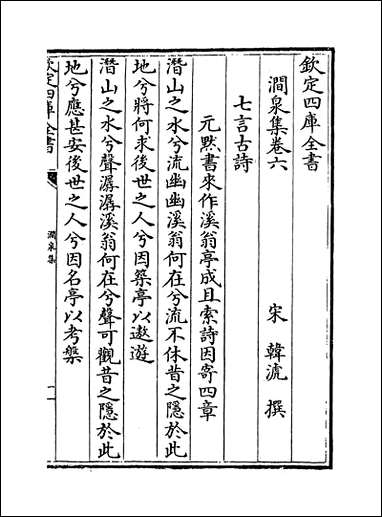 欽定四庫全書
澗泉集卷六
宋 韓淲 撰
七言古詩
元黙書來作溪翁亭成且索詩因寄四章
潛山之水兮流幽幽溪翁何在兮流不休昔之隱於此
地兮將何求後世之人兮因築亭以遨遊
潛山之水兮聲潺潺溪翁何在兮聲可觀昔之隱於此
地兮應甚安後世之人兮因名亭以考槃
欽定四庫全書
澗泉集
一